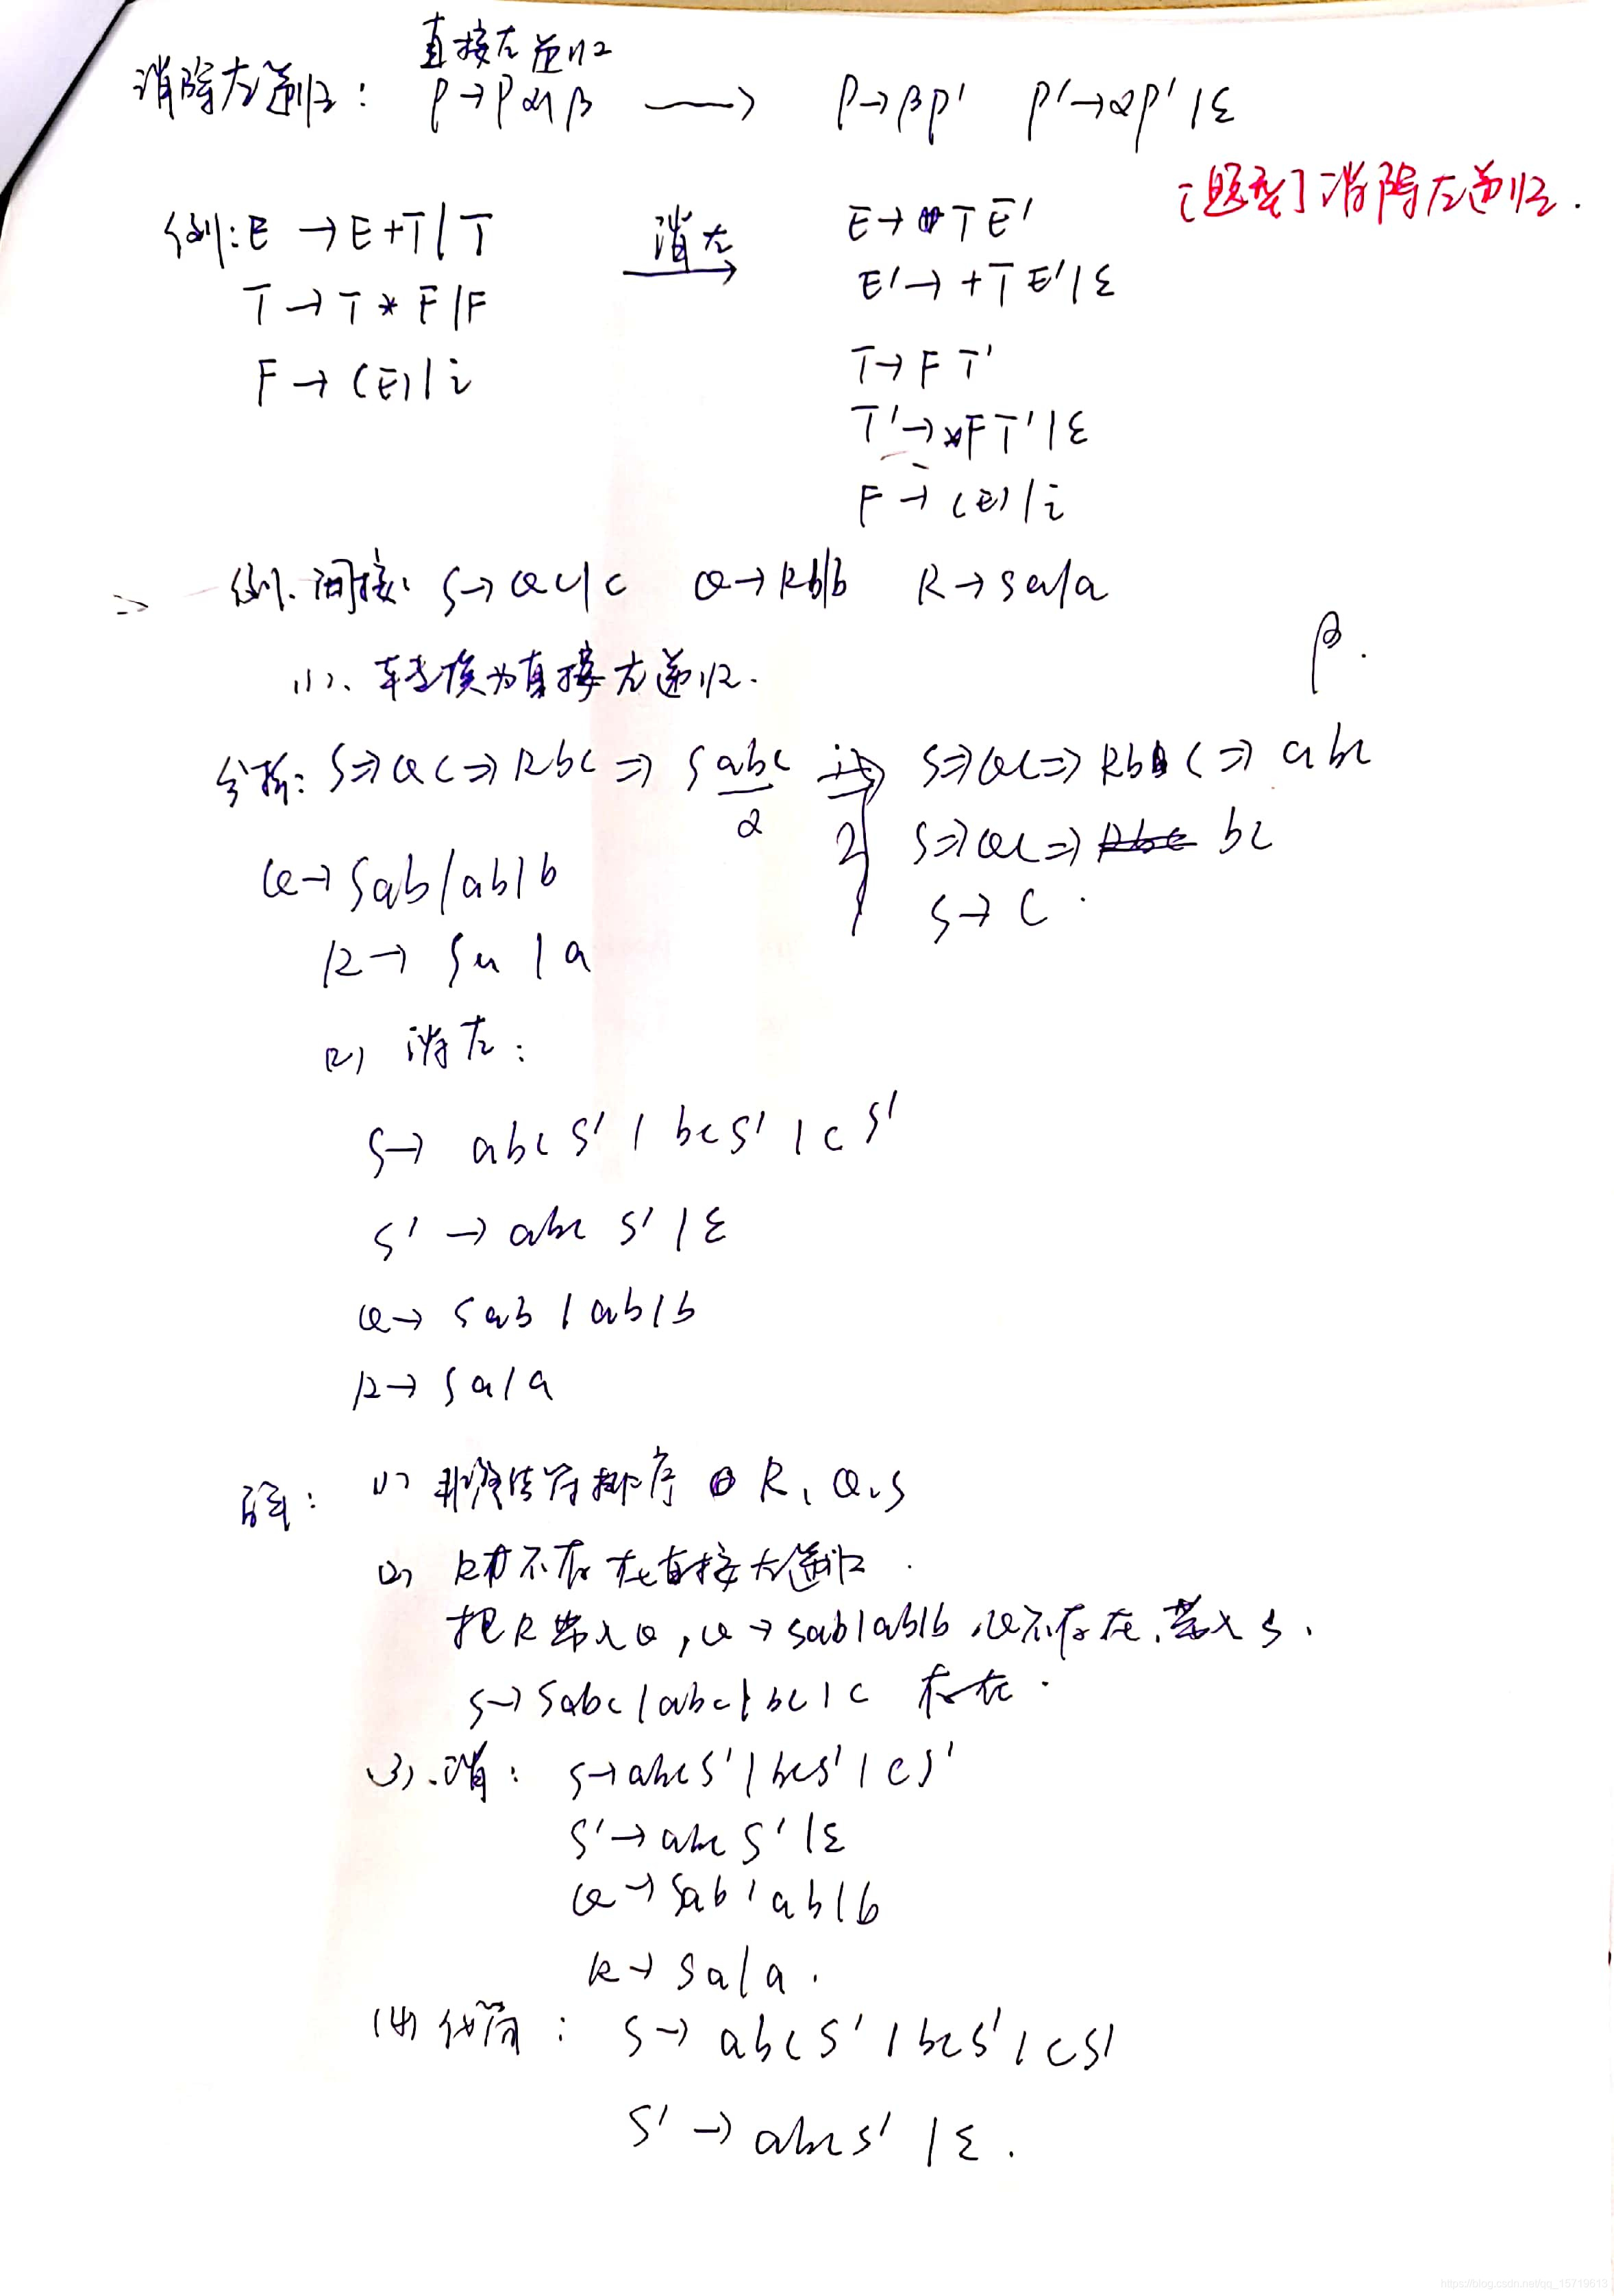 直接左递归
消除左递归: P→Pα|β ⟶ P→βP' P'→αP'|ε
[题型]消除左递归.
例:E →E+T|T 消左 E→TE'
T→T*F|F E'→+TE'|ε
F→(E)|i T→FT'
T'→*FT'|ε
F→(E)|i
例.间接: S→Qc|c Q→Rb|b R→Sa|a
β.
(1)、转换为直接左递归.
分析: S⇒Qc⇒Rbc⇒Sabc S⇒Qc⇒Rbc⇒abc
α S⇒Qc⇒bc
Q→Sab|ab|b S→c.
R→Sa|a
(2) 消左:
S→ abcS'|bcS'|cS'
S'→abcS'|ε
Q→Sab|ab|b
R→Sa|a
解: (1) 非终结符排序 R、Q、S
(2) R不存在直接左递归.
把R带入Q,Q→Sab|ab|b,Q不存在,带入S.
S→Sabc|abc|bc|c 存在.
(3).消: S→abcS'|bcS'|cS'
S'→abcS'|ε
Q→Sab|ab|b
R→Sa|a.
(4) 化简: S→abcS'|bcS'|cS'
S'→abcS'|ε.
https://blog.csdn.net/qq_15719613